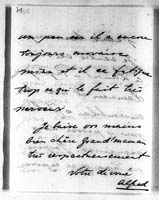 un peu mais il a encore
toujours mauvaise
mine et il se fatigue
trop ce qui le fait très
nerveux.
Je baise vos mains
bien chère Grand'maman
très respectueusement
votre dévoué
Alfred